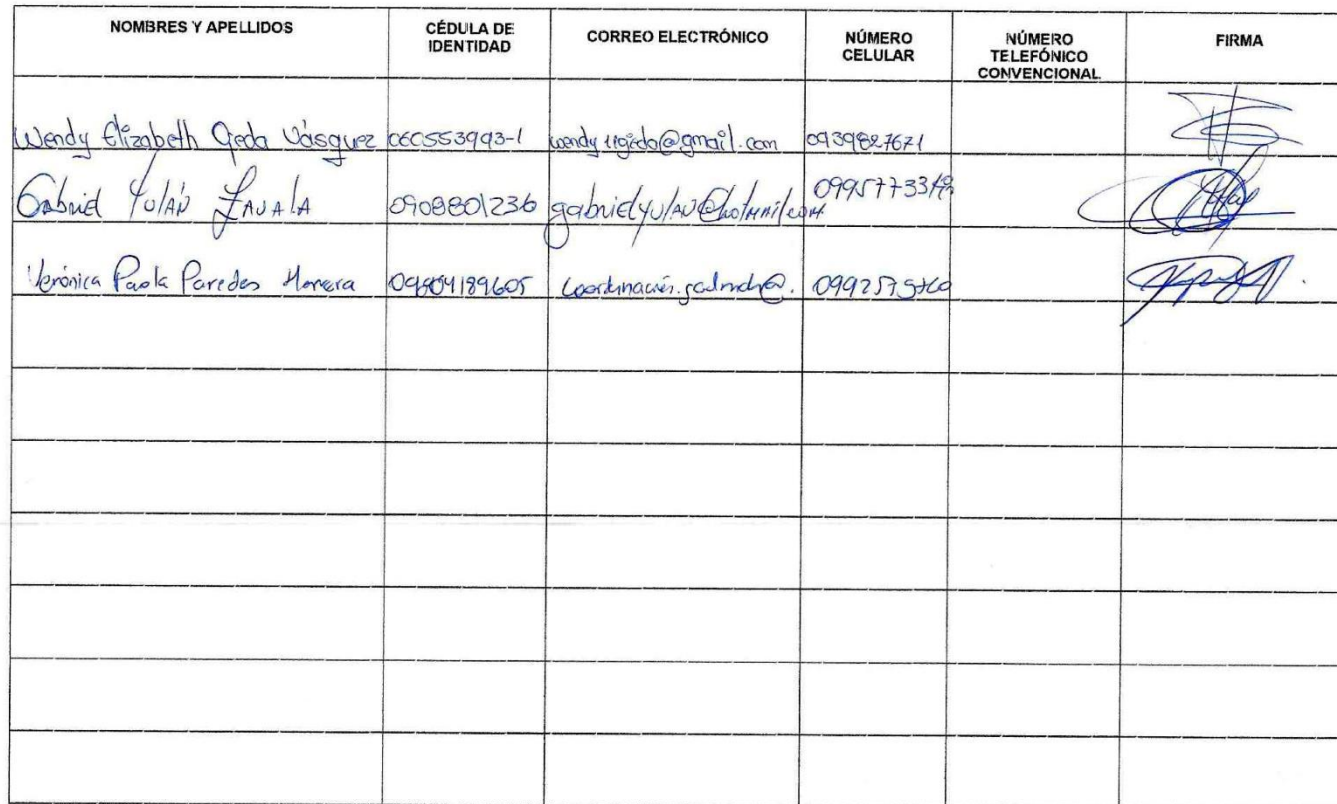 NOMBRES Y APELLIDOS CÉDULA DE IDENTIDAD CORREO ELECTRÓNICO NÚMERO CELULAR NÚMERO TELEFÓNICO CONVENCIONAL FIRMA
Wendy Elizabeth Ojeda Vásquez 060553993-1 @gmail.com 0939827671
Gabriel Yulán Zavala 0908801236 gabrielyulan@hotmail.com
Verónica Paola Paredes Herrera 09804189605